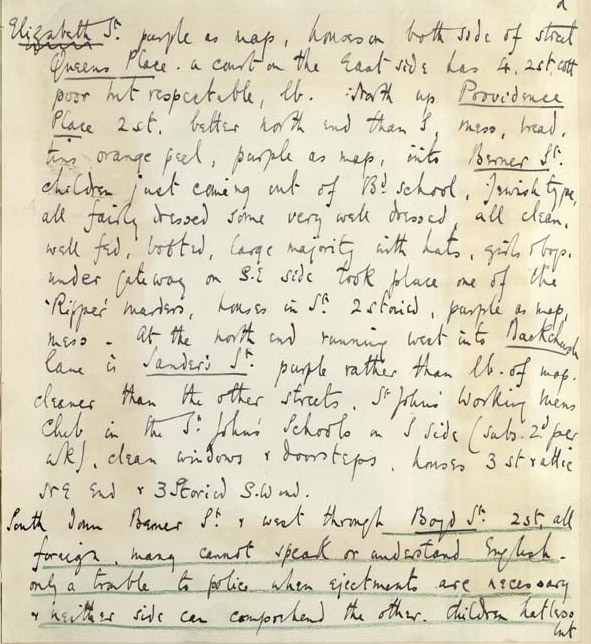 2
Elizabeth St. purple as map, houses on both side of street
Queens Place. a court on the East side has 4. 2st. cott
poor but respectable, lb. North up Providence
Place 2st. better north end than S, mess, bread,
tins orange peel, purple as map, into Berner St.
children just coming out of Bd school. Jewish type,
all fairly dressed some very well dressed, all clean,
well fed, booted, large majority with hats, girls & boys.
under gateway on S.E side took place one of the
'Ripper' murders, houses in St. 2 storied, purple as map,
mess - At the north end running west into Backchurch
lane is Sander's St. purple rather than lb. of map.
cleaner than the other streets. St John's Working Mens
Club in the St John's Schools on S side (subs. 2d per
wk). clean windows & doorsteps. houses 3 st & attic
at E end & 3 Storied S.W end.
South down Berner St & west through Boyd St. 2st, all
foreign. many cannot speak or understand English -
only a trouble to police when ejectments are necessary
& neither side can comprehend the other. children hatless
but